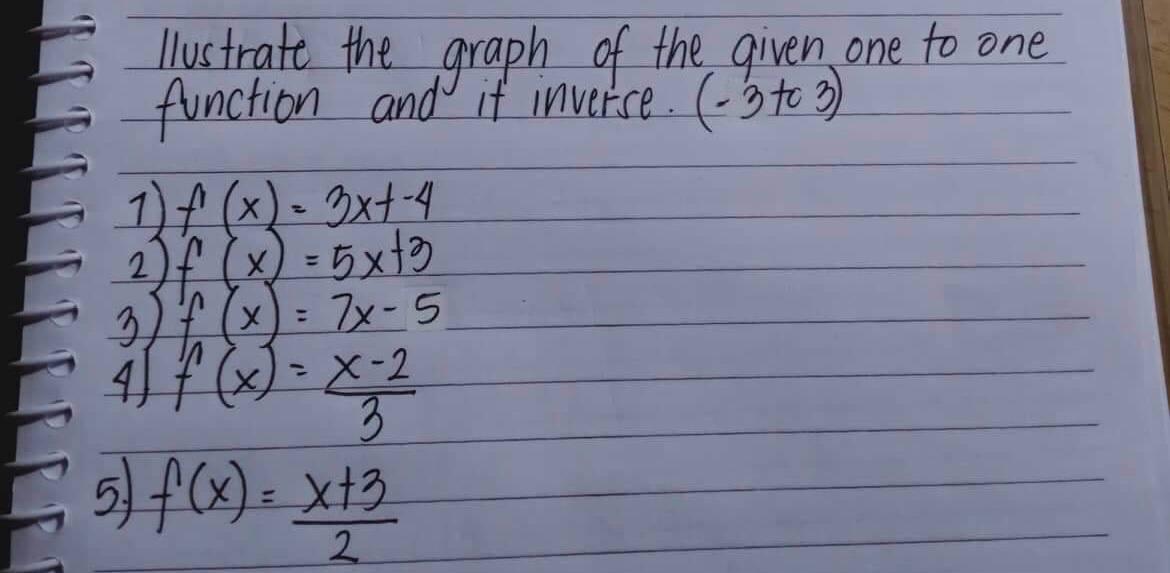 Ilustrate the graph of the given one to one
function and it inverse. (-3 to 3)
1) f (x) = 3x+-4
2) f (x) = 5x+3
3) f (x) = 7x - 5
4) f (x) = x-2
3
5.) f(x) = x+3
2